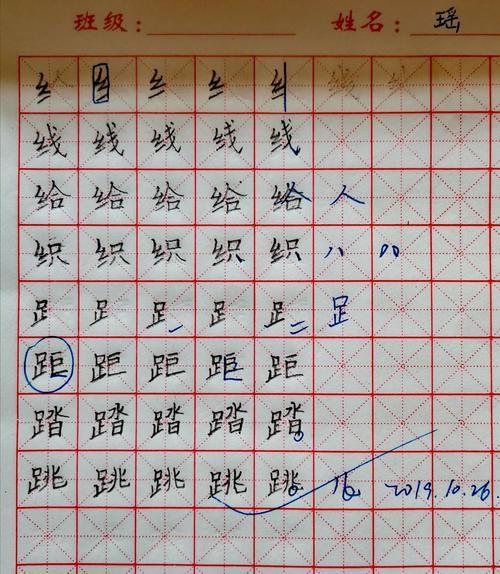 班级： 姓名： 瑶
纟 纟 纟 纟 纟
线 线 线 线 线
给 给 给 给 给 人
织 织 织 织 织 八
𧾷 𧾷 𧾷 𧾷 𧾷 足
距 距 距 距 距
踏 踏 踏 踏 踏
跳 跳 跳 跳 跳 2019.10.26